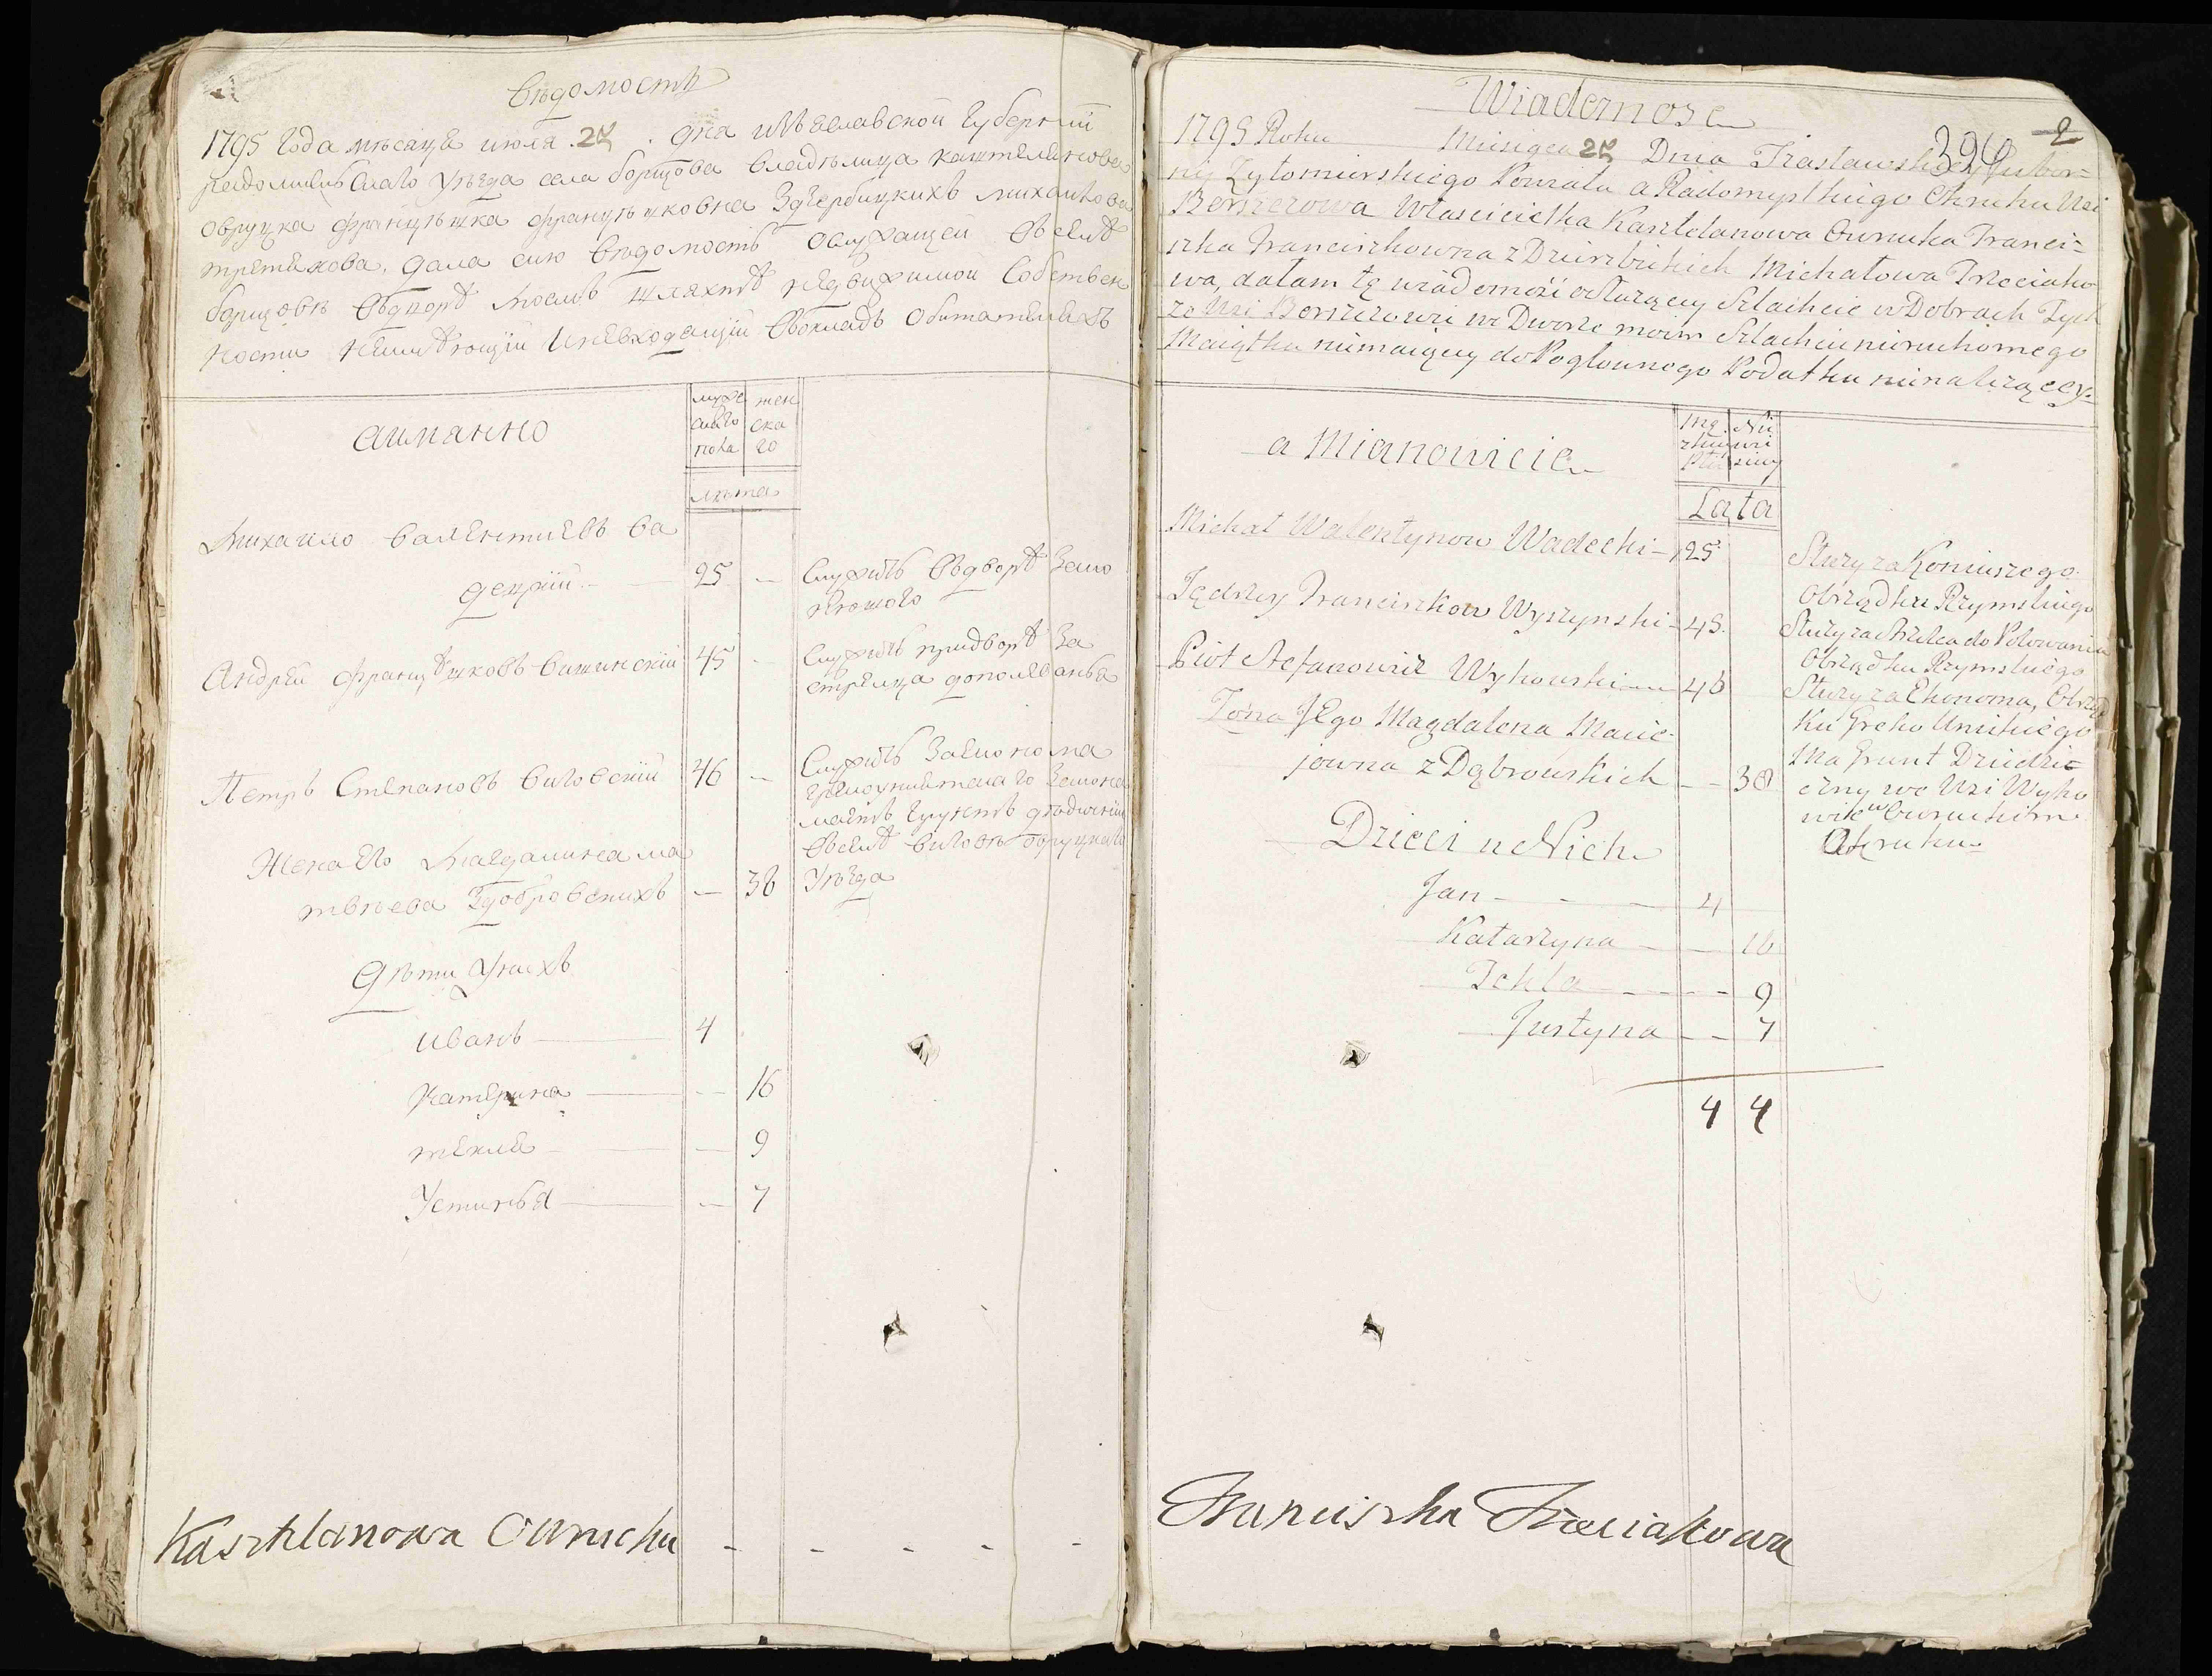 Вѣдомость
1795 года мѣсяца июля 25 дня изяславской губерний
радомисльскаго уѣзда села борщова владѣлица каштелянова
овруцка францѣшка францѣшковна Здзербицкихъ михаилова
третякова, дала сию вѣдомость о служащей в селѣ
борщовѣ въ дворѣ моемъ шляхтѣ недвижимой собствен
ности неимѣющій и невходящій вокладъ
а имянно
муже
скаго
пола
жен
ска
го
лѣта
Михайло валентиевъ ва
децкий 25 -
Служитъ в дворѣ за ко
нюшого
Андрей францѣшковъ вишинский 45 -
Служитъ при дворѣ за
стрелца до полеванья
Петръ Степановъ виговский 46 -
Служитъ за економа
греко униятскаго закона
маетъ грунтъ дѣдичний
в селѣ виговѣ овруцкаго
уѣзда
Жена его Магдалина ма
твѣева Здобровскихъ - 38
Дѣти у нихъ
иванъ 4
катерина - 16
текля - 9
Устинья - 7
Kasztelanowa Owrucka - - - - -
Wiadomosc
2
390
1795 Roku Miesiąca 25 Dnia Izasławskiey Guber=
nij Zytomierskiego Powiatu a Radomyslskiego Okruhu Wsi
Berszczowa Włascicielka Kasztelanowa Owrucka Franci=
szka Franciszkowna z Dzierzbickich Michałowa Trzeciako
wa, dałam tę wiadomość o służącey Szlachcie w Dobrach Tych
ze Wsi Borszczowie we Dworze moim Szlachcie nieruchomego
Maiątku niemaiącey do Pogłownego Podatku nienależącey
a Mianowicie
Mę
zkiey
Płci
Nie
wie
sciey
Lata
Michał Walentynow Wadecki - 25
Służy za Koniuszego
Obrządku Rzymskiego
Jędrzey Franciszkow Wyszynski - 45
Służy za strzelca do Polowania
Obrządku Rzymskiego
Piotr Stefanowicz Wyhowski 46
Służy za Ekonoma, Obrząd
ku Greko Unickiego
Ma Grunt Dziedzi=
czny we Wsi Wyho
wie w Owruckim
Okruhu
Zona JEgo Magdalena Macie
jowna z Dąbrowskich - 38
Dzieci u Nich
Jan - 4
Katarzyna - 16
Tekla - 9
Justyna - 7
4 4
Franciszka Trzeciakowa